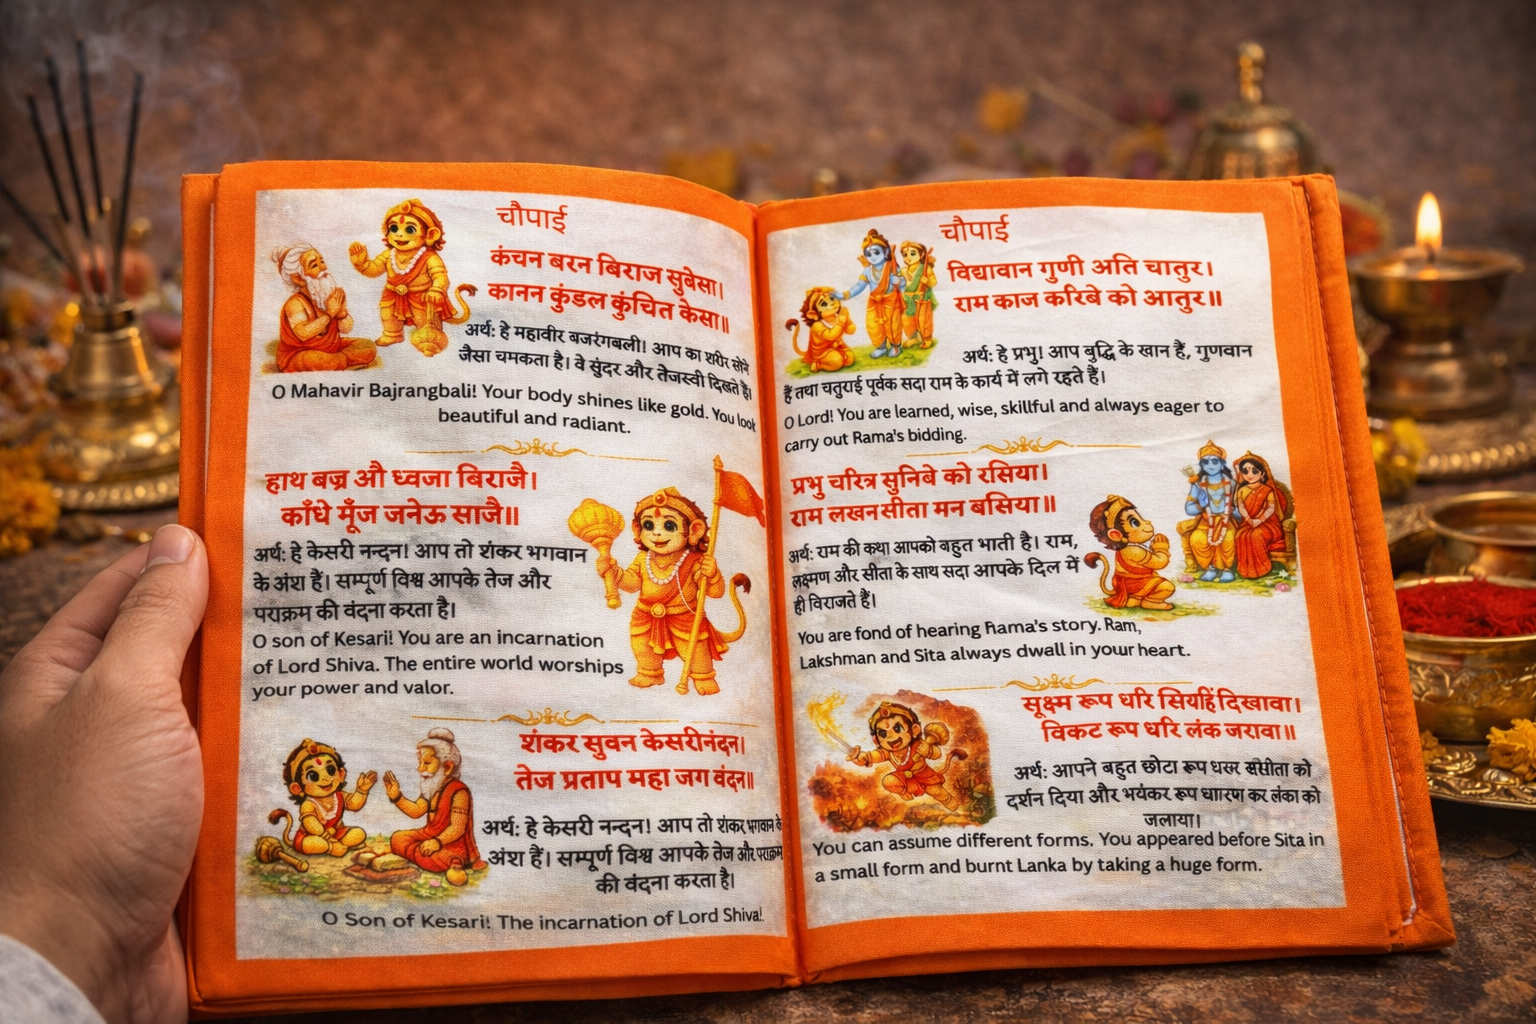 चौपाई
कंचन बरन बिराज सुबेसा।
कानन कुंडल कुंचित केसा॥
अर्थ: हे महावीर बजरंगबली! आप का शरीर सोने
जैसा चमकता है। वे सुंदर और तेजस्वी दिखते हैं।
O Mahavir Bajrangbali! Your body shines like gold. You look
beautiful and radiant.
हाथ बज्र औ ध्वजा बिराजै।
काँधे मूँज जनेऊ साजै॥
अर्थ: हे केसरी नन्दन! आप तो शंकर भगवान
के अंश हैं। सम्पूर्ण विश्व आपके तेज और
पराक्रम की वंदना करता है।
O son of Kesari! You are an incarnation
of Lord Shiva. The entire world worships
your power and valor.
शंकर सुवन केसरीनंदन।
तेज प्रताप महा जग वंदन॥
अर्थ: हे केसरी नन्दन! आप तो शंकर भगवान के
अंश हैं। सम्पूर्ण विश्व आपके तेज और पराक्रम
की वंदना करता है।
O Son of Kesari! The incarnation of Lord Shiva!
चौपाई
विद्यावान गुणी अति चातुर।
राम काज करिबे को आतुर॥
अर्थ: हे प्रभु! आप बुद्धि के खान हैं, गुणवान
हैं तथा चतुराई पूर्वक सदा राम के कार्य में लगे रहते हैं।
O Lord! You are learned, wise, skillful and always eager to
carry out Rama's bidding.
प्रभु चरित्र सुनिबे को रसिया।
राम लखन सीता मन बसिया॥
अर्थ: राम की कथा आपको बहुत भाती है। राम,
लक्ष्मण और सीता के साथ सदा आपके दिल में
ही विराजते हैं।
You are fond of hearing Rama's story. Ram,
Lakshman and Sita always dwall in your heart.
सूक्ष्म रूप धरि सियहिं दिखावा।
विकट रूप धरि लंक जरावा॥
अर्थ: आपने बहुत छोटा रूप को
दर्शन दिया और भयंकर रूप धारण कर लंका को
जलाया।
You can assume different forms. You appeared before Sita in
a small form and burnt Lanka by taking a huge form.